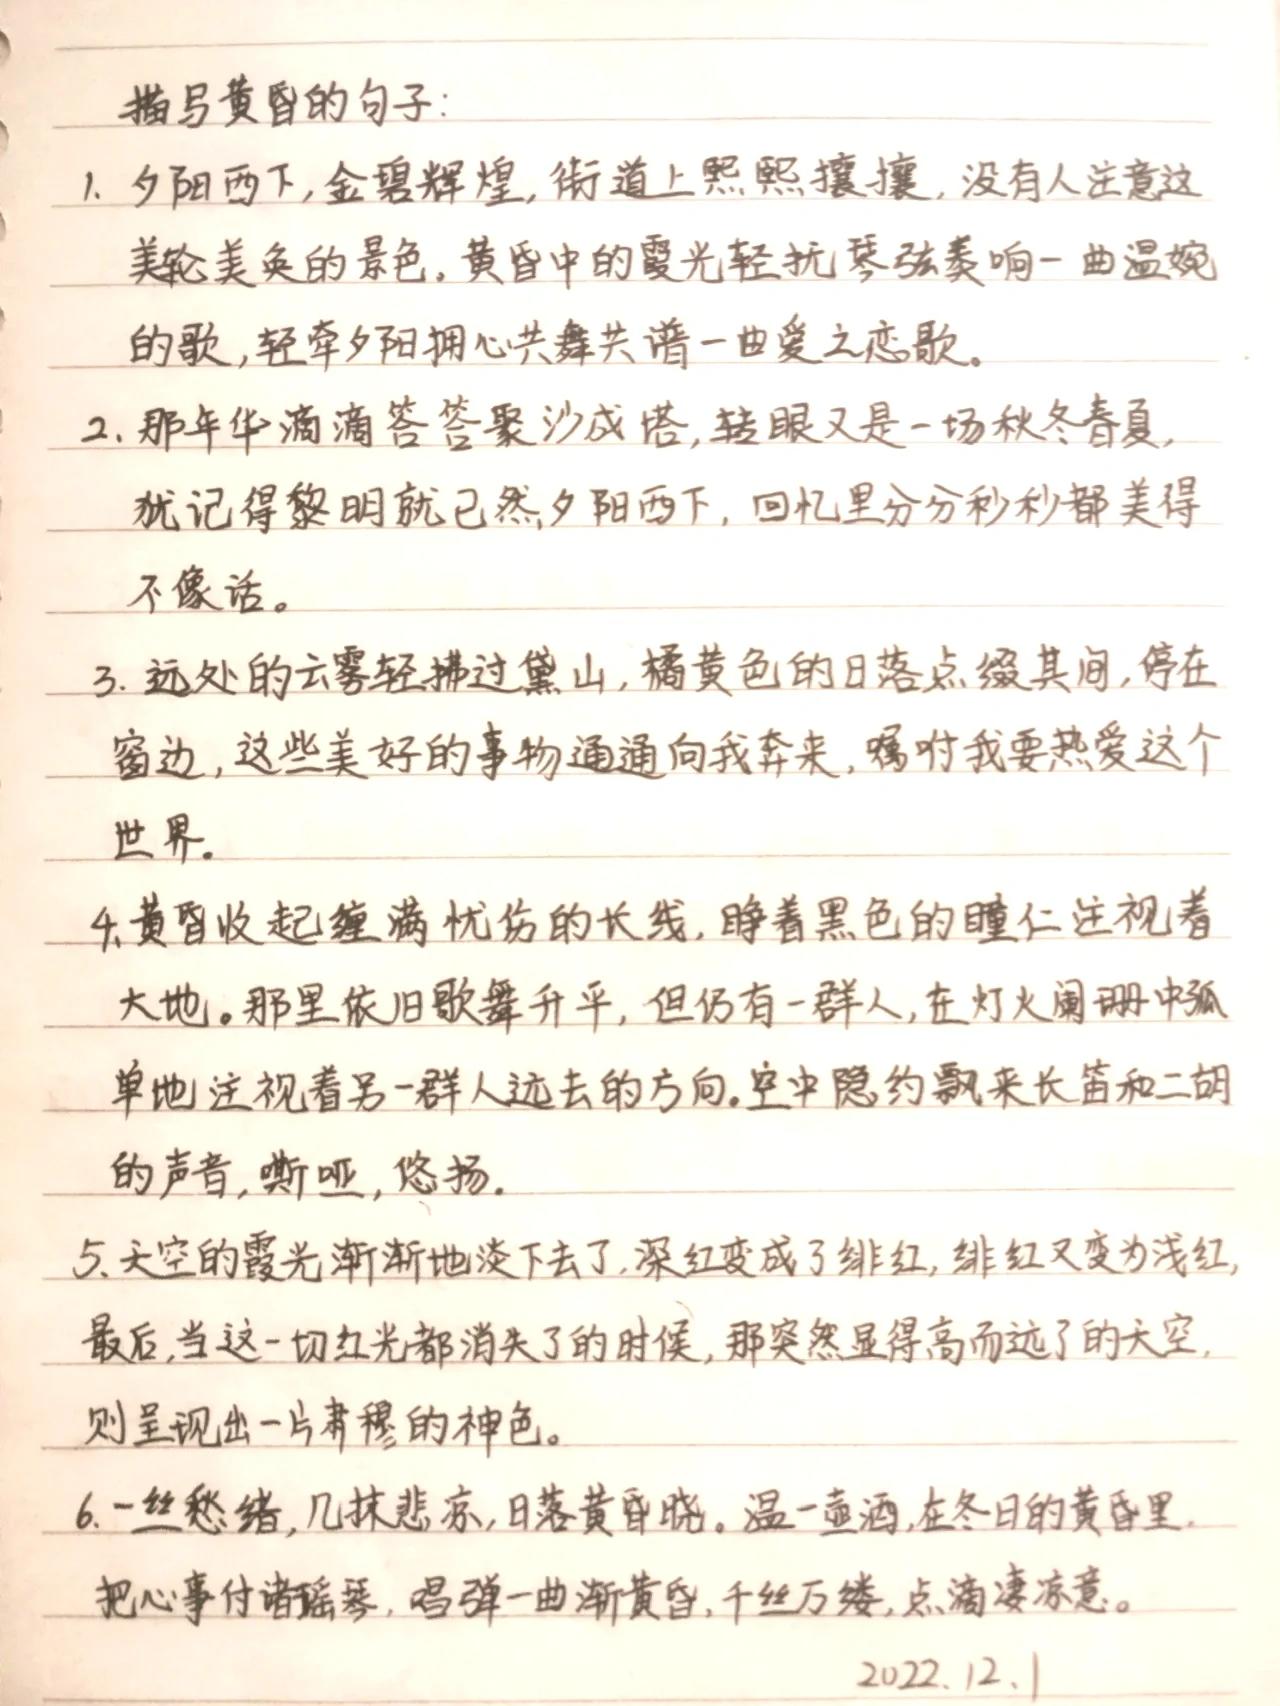 描写黄昏的句子:
1. 夕阳西下,金碧辉煌,街道上熙熙攘攘,没有人注意这
美轮美奂的景色。黄昏中的霞光轻抚琴弦奏响一曲温婉
的歌,轻牵夕阳拥心共舞共谱一曲爱之恋歌。
2. 那年华滴滴答答聚沙成塔,转眼又是一场秋冬春夏,
犹记得黎明就已然夕阳西下,回忆里分分秒秒都美得
不像话。
3. 远处的云雾轻拂过黛山,橘黄色的日落点缀其间,停在
窗边,这些美好的事物通通向我奔来,嘱咐我要热爱这个
世界。
4. 黄昏收起缠满忧伤的长线,睁着黑色的瞳仁注视着
大地。那里依旧歌舞升平,但仍有一群人,在灯火阑珊中孤
单地注视着另一群人远去的方向。空中隐约飘来长笛和二胡
的声音,嘶哑,悠扬。
5. 天空的霞光渐渐地淡下去了,深红变成了绯红,绯红又变为浅红,
最后,当这一切红光都消失了的时候,那突然显得高而远了的天空,
则呈现出一片肃穆的神色。
6. 一丝愁绪,几抹悲凉,日落黄昏晓。温一壶酒,在冬日的黄昏里,
把心事付诸瑶琴,唱弹一曲渐黄昏,千丝万缕,点滴凄凉意。
2022.12.1